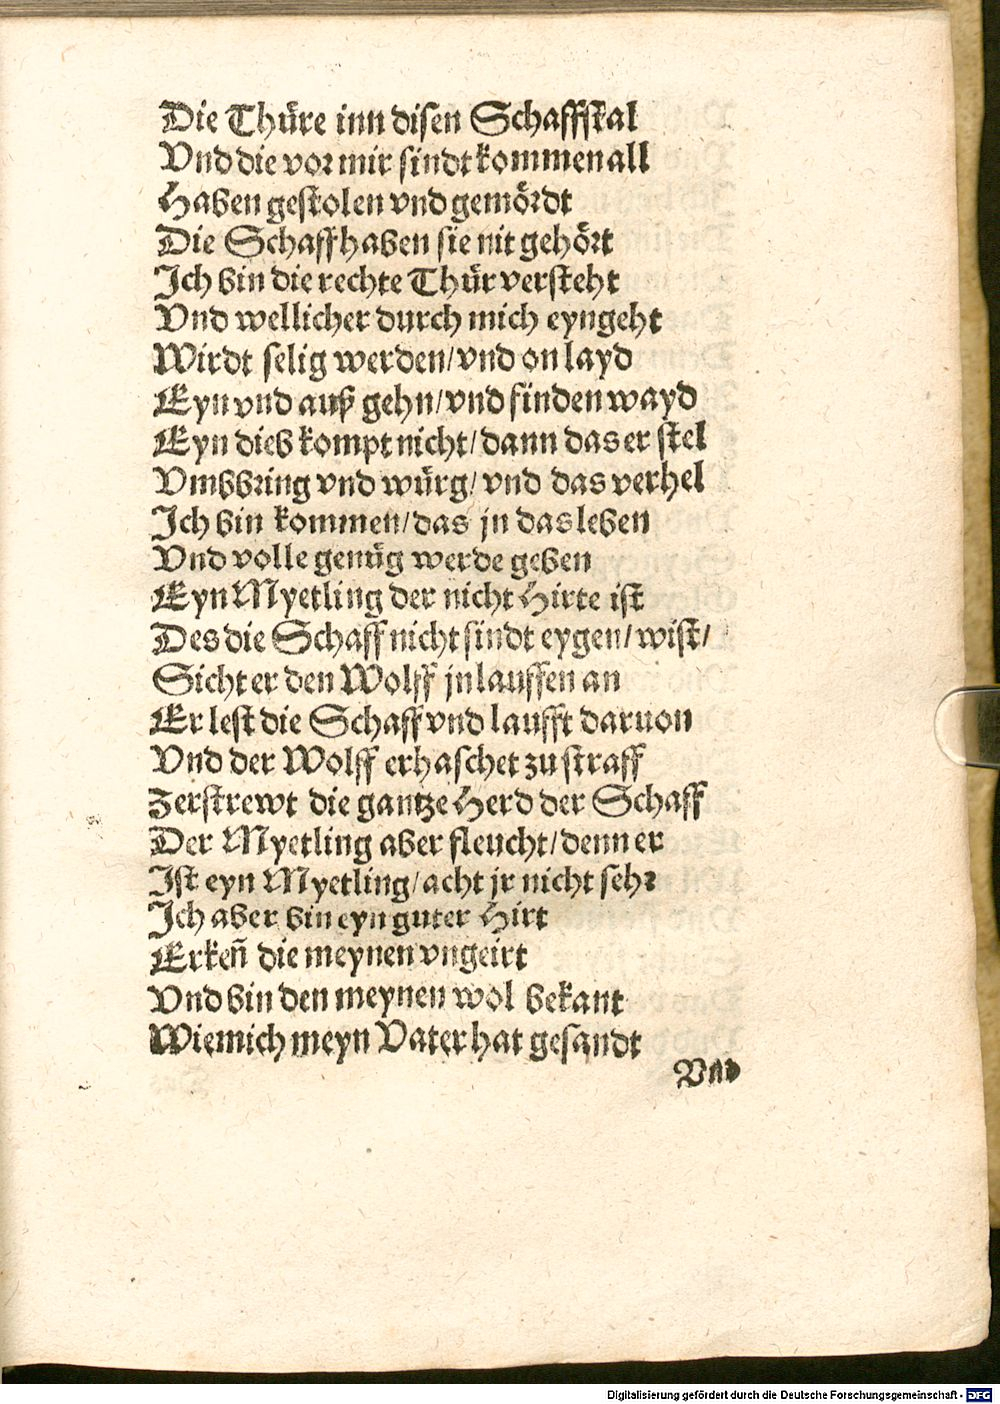 Die Thüre inn disen Schaffstal
Vnd die vor mir sindt kommen all
Haben gestolen vnd gemördt
Die Schaff haben sie nit gehört
Ich bin die rechte Thür versteht
Vnd wellicher durch mich eyngeht
Wirdt selig werden/vnd on layd
Eyn vnd auß gehn/vnd finden wayd
Eyn dieb kompt nicht/dann das er stel
Vmbbring vnd würg/vnd das verhel
Ich bin kommen/das jn das leben
Vnd volle genüg werde geben
Eyn Myetling der nicht Hirte ist
Des die Schaff nicht sindt eygen/wist/
Sicht er den Wolff jn lauffen an
Er lest die Schaff vnd laufft daruon
Vnd der Wolff erhaschet zu straff
Zerstrewt die gantze Herd der Schaff
Der Myetling aber fleucht/denn er
Ist eyn Myetling/acht jr nicht sehr
Ich aber bin eyn guter Hirt
Erkeñ die meynen vngeirt
Vnd bin den meynen wol bekant
Wie mich meyn Vater hat gesandt
Vnd
Digitalisierung gefördert durch die Deutsche Forschungsgemeinschaft - DFG